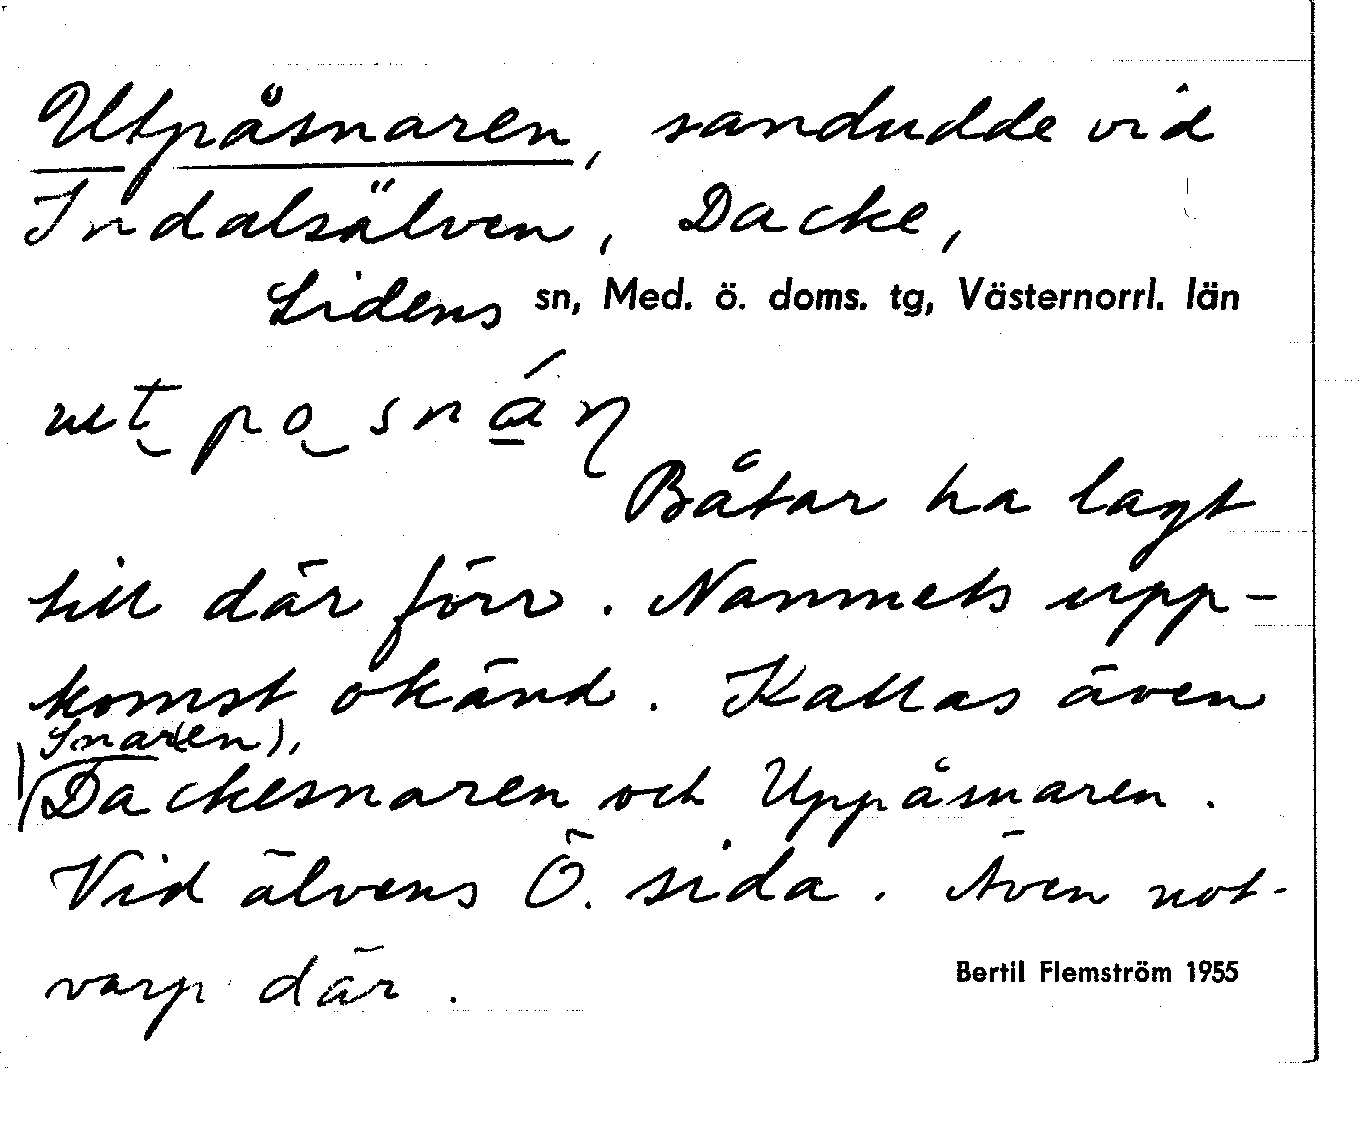 Utpåsnaren, sandudde vid
Indalsälven, Dacke,
Lidens sn, Med. ö. doms. tg, Västernorrl. län
Båtar ha lagt
till där förr. Namnets upp-
komst okänd. Kallas även
Snar(en),
Dackesnaren och Uppåsnaren.
Vid älvens Ö. sida. Även not-
varp där.
Bertil Flemström 1955